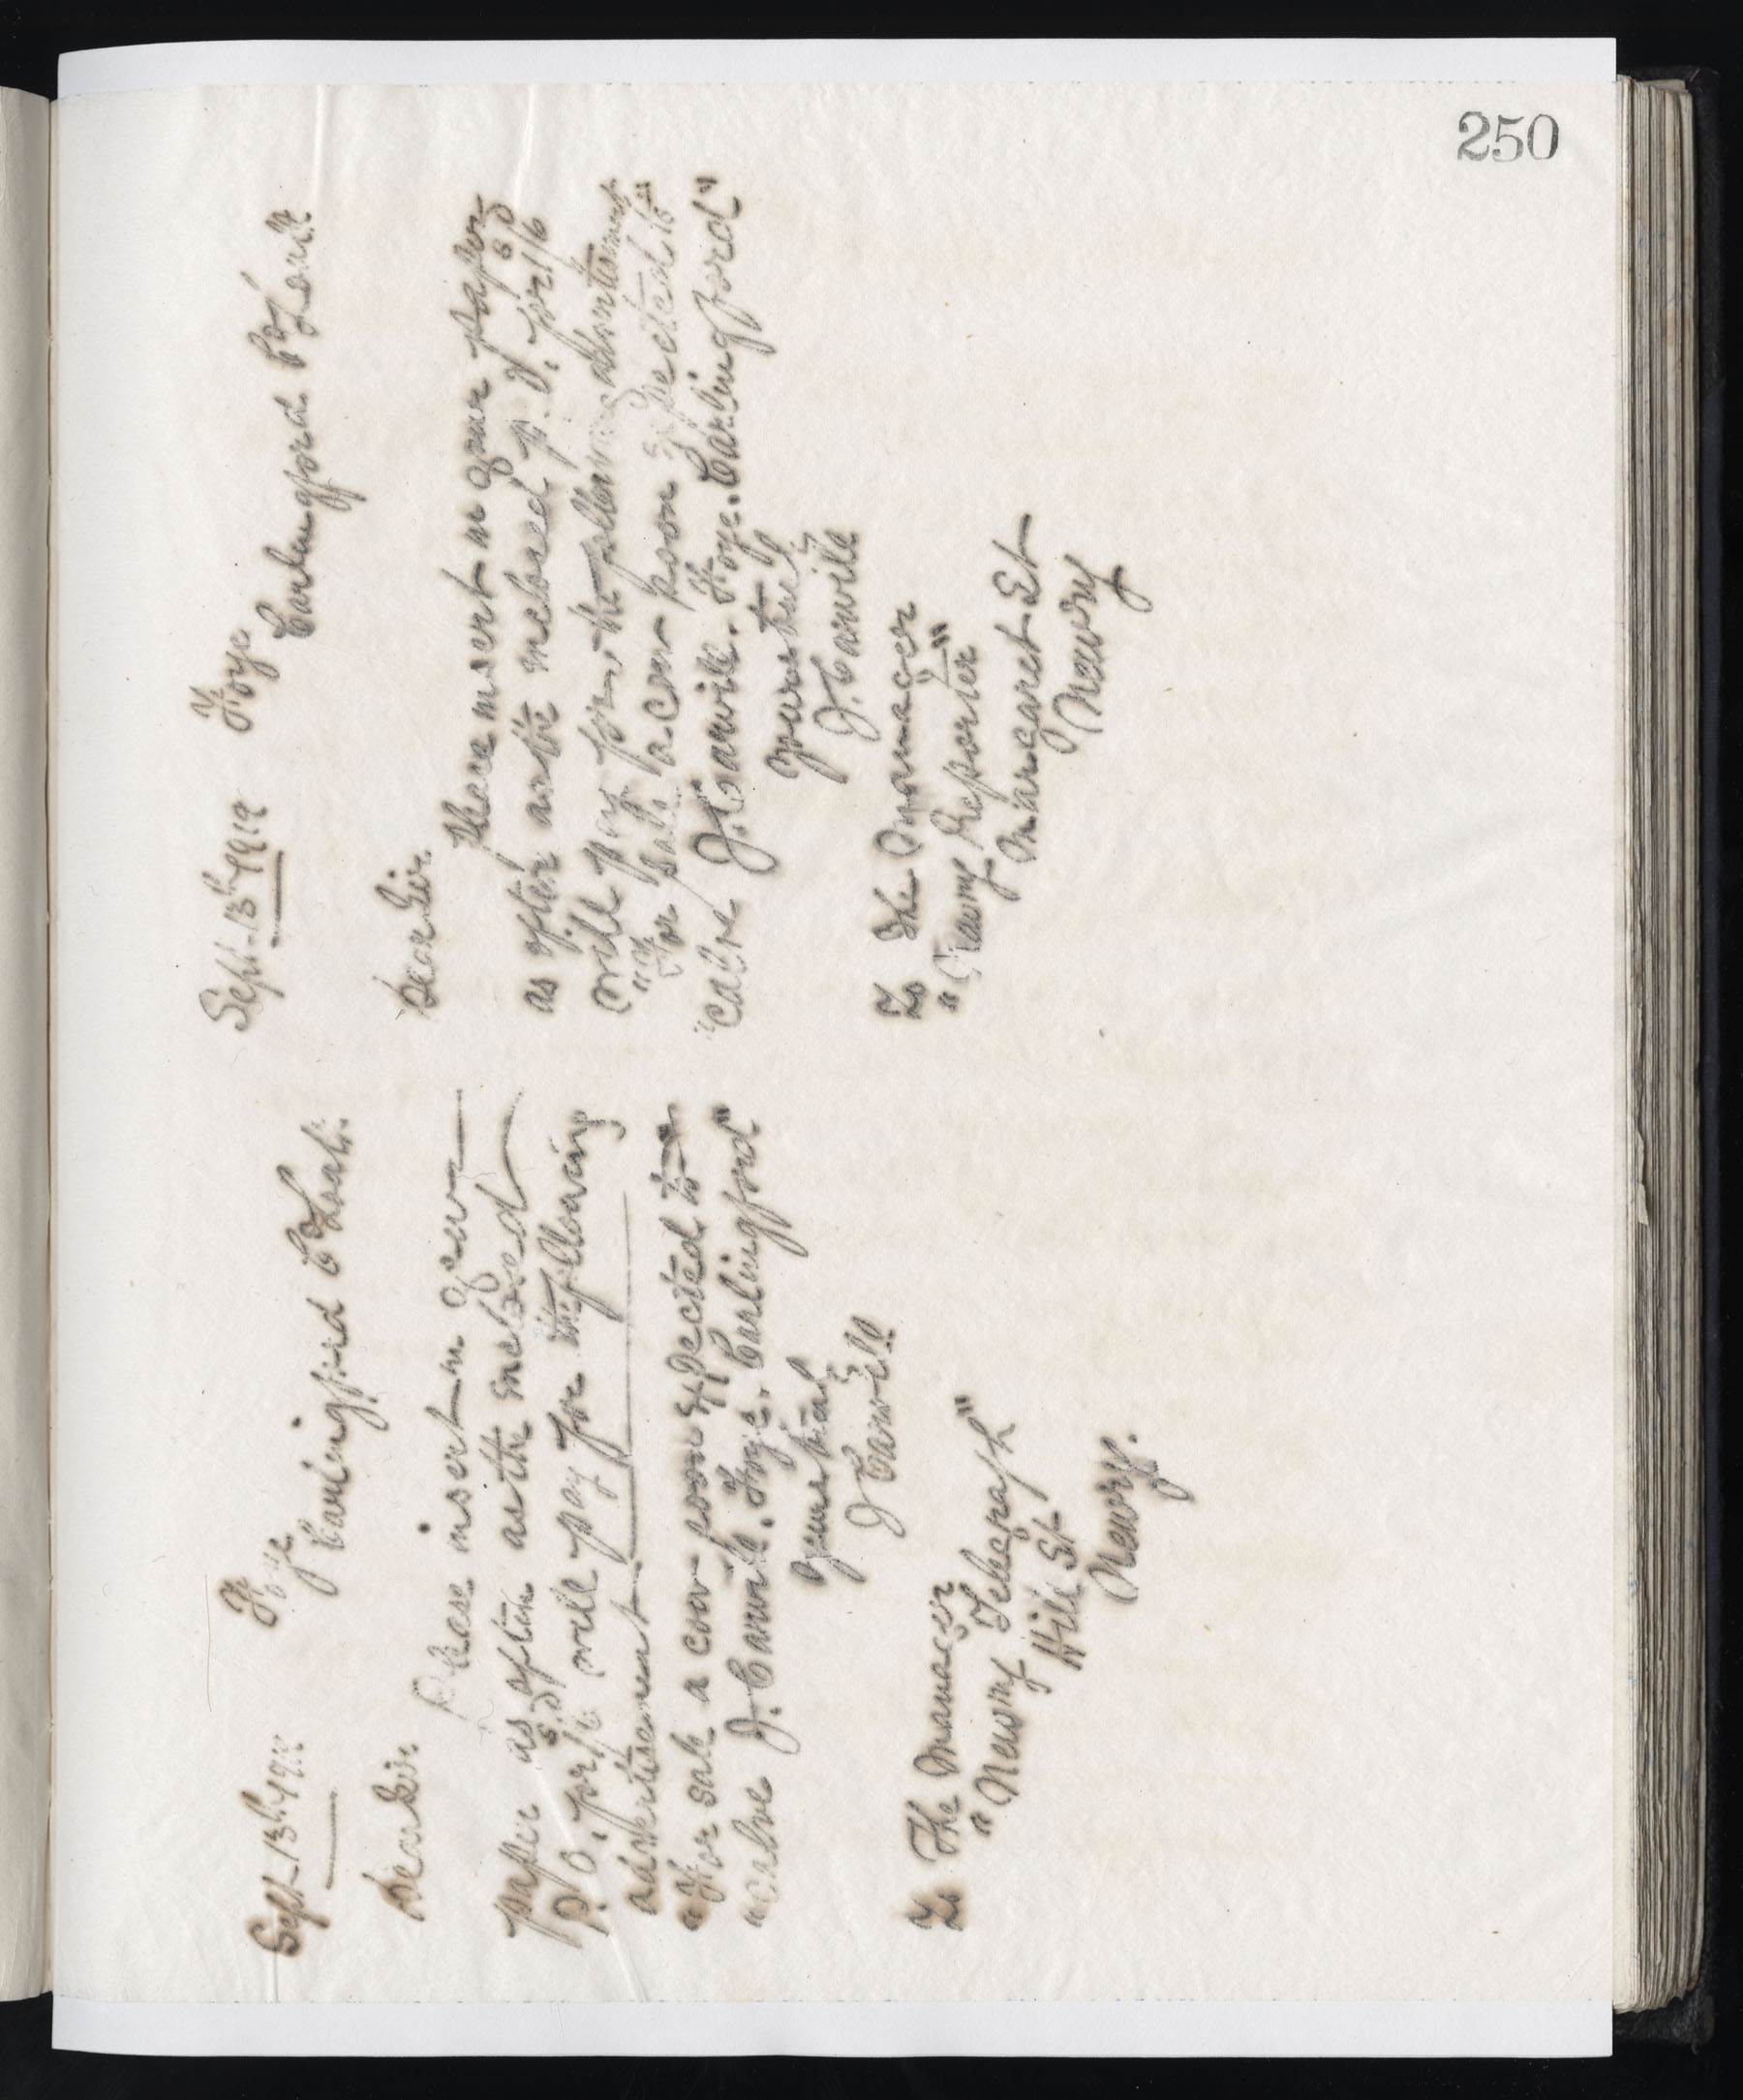 250
Sept 13th 1912 Foye
Carlingford Co Louth.
Dear Sir.
Please insert in your
paper as often as the inclosed
P.O. for 1/6 will pay for the following
advertisement.
"For sale a cow soon expected to"
"calve J. Carvill. Foye. Carlingford"
yours truly
J Carvill
To The Manager
"Newry Telegraph"
Hill St
Newry.
Sept 13th 1912 Foye
Carlingford Co Louth
Dear Sir.
Please insert in your paper
as often as the inclosed P.O. for 1/6
will pay for the following advertisement
"For sale a cow soon expected to"
"calve J. Carvill. Foye. Carlingford"
yours truly
J. Carvill
To The Manager
"Newry Reporter"
Margaret St
Newry